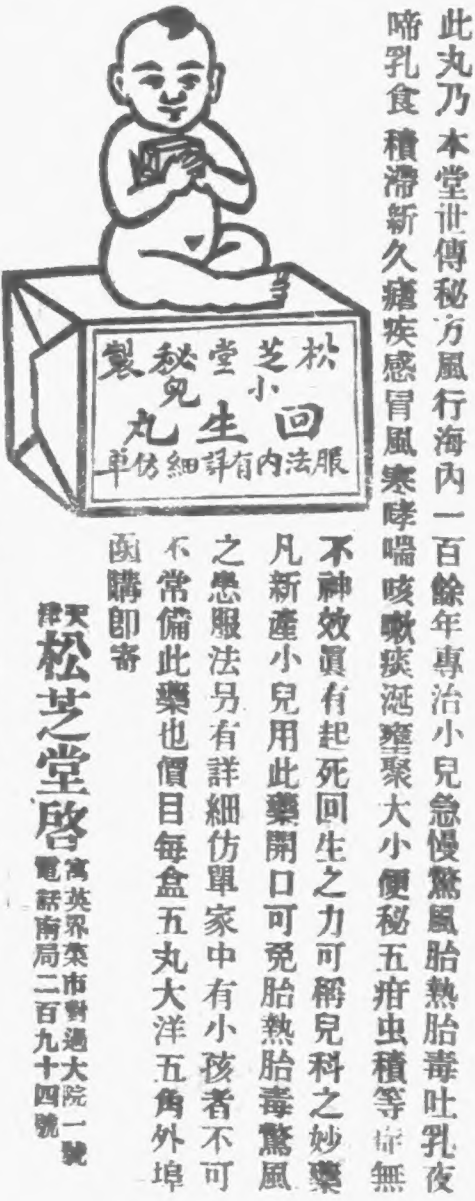 此丸乃本堂世傳秘方風行海內一百餘年專治小兒急慢驚風胎熱胎毒吐乳夜
啼乳食積滯新久瘧疾感冒風寒哮喘咳嗽痰涎壅聚大小便秘五疳虫積等症無
不神效眞有起死回生之力可稱兒科之妙藥
凡新產小兒用此藥開口可免胎熱胎毒驚風
之患服法另有詳細仿單家中有小孩者不可
不常備此藥也價目每盒五丸大洋五角外埠
函購即寄
松芝堂秘製
小兒
回生丸
服法內有詳細仿单
天津
松芝堂啓
寓英界菜市對過大院一號
電話南局二百九十四號